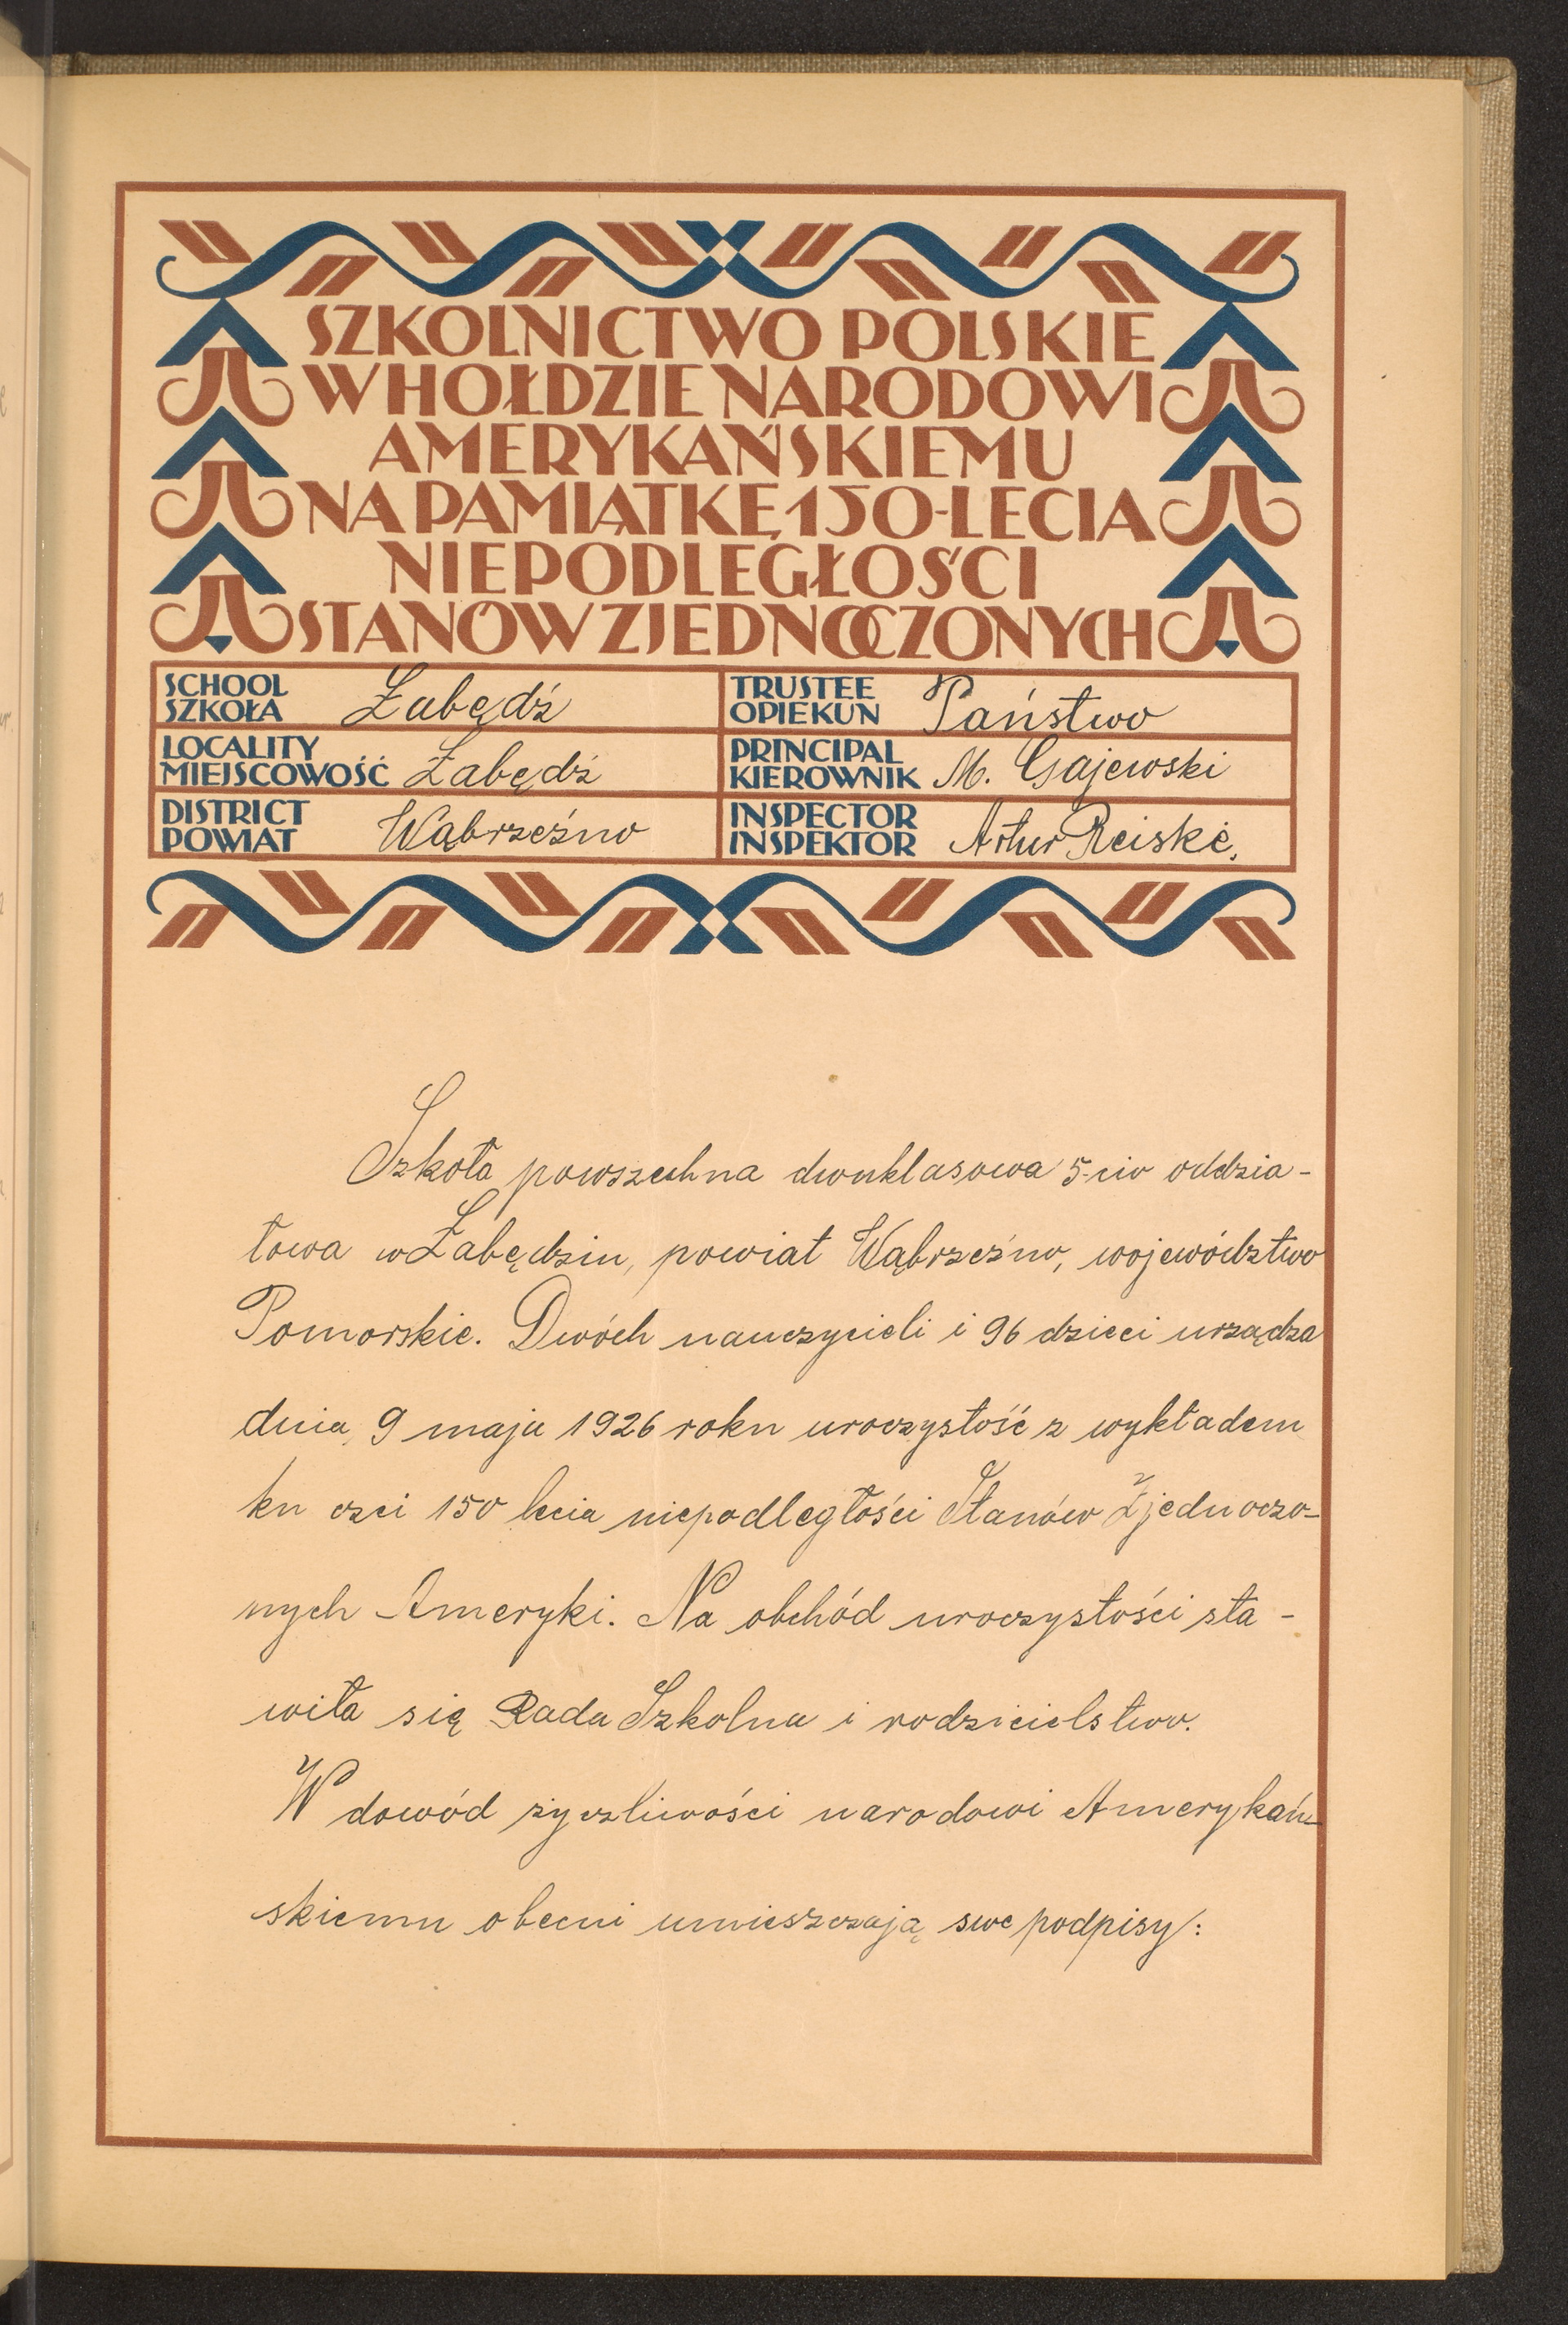 SZKOLNICTWO POLSKIE
W HOŁDZIE NARODOWI
AMERYKAŃSKIEMU
NA PAMIĄTKĘ 150-LECIA
NIEPODLEGŁOŚCI
STANÓW ZJEDNOCZONYCH
SCHOOL
SZKOŁA Łabędź
TRUSTEE
OPIEKUN Państwo
LOCALITY
MIEJSCOWOŚĆ Łabędź
PRINCIPAL
KIEROWNIK M. Gajewski
DISTRICT
POWIAT Wąbrzeźno
INSPECTOR
INSPEKTOR Artur Reiske.
Szkoła powszechna dwuklasowa 5-cio oddzia-
łowa w Łabędziu, powiat Wąbrzeźno, województwo
Pomorskie. Dwóch nauczycieli i 96 dzieci urządza
dnia 9 maja 1926 roku uroczystość z wykładem
ku czci 150 lecia niepodległości Stanów Zjednoczo-
nych Ameryki. Na obchód uroczystości sta-
wiła się Rada Szkolna i rodzicielstwo.
W dowód życzliwości narodowi Amerykań-
skiemu obecni umieszczają swe podpisy: